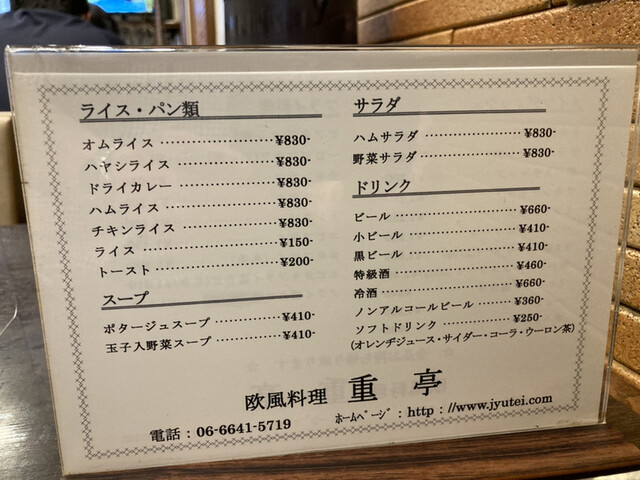 ライス・パン類
オムライス ¥830-
ハヤシライス ¥830-
ドライカレー ¥830-
ハムライス ¥830-
チキンライス ¥830-
ライス ¥150-
トースト ¥200-
スープ
ポタージュスープ ¥410-
玉子入野菜スープ ¥410-
サラダ
ハムサラダ ¥830-
野菜サラダ ¥830-
ドリンク
ビール ¥660-
小ビール ¥410-
黒ビール ¥410-
特級酒 ¥460-
冷酒 ¥660-
ノンアルコールビール ¥360-
ソフトドリンク ¥250-
(オレンヂジュース・サイダー・コーラ・ウーロン茶)
欧風料理 重亭
電話：06-6641-5719
ﾎｰﾑﾍﾟｰｼﾞ：http：//www.jyutei.com